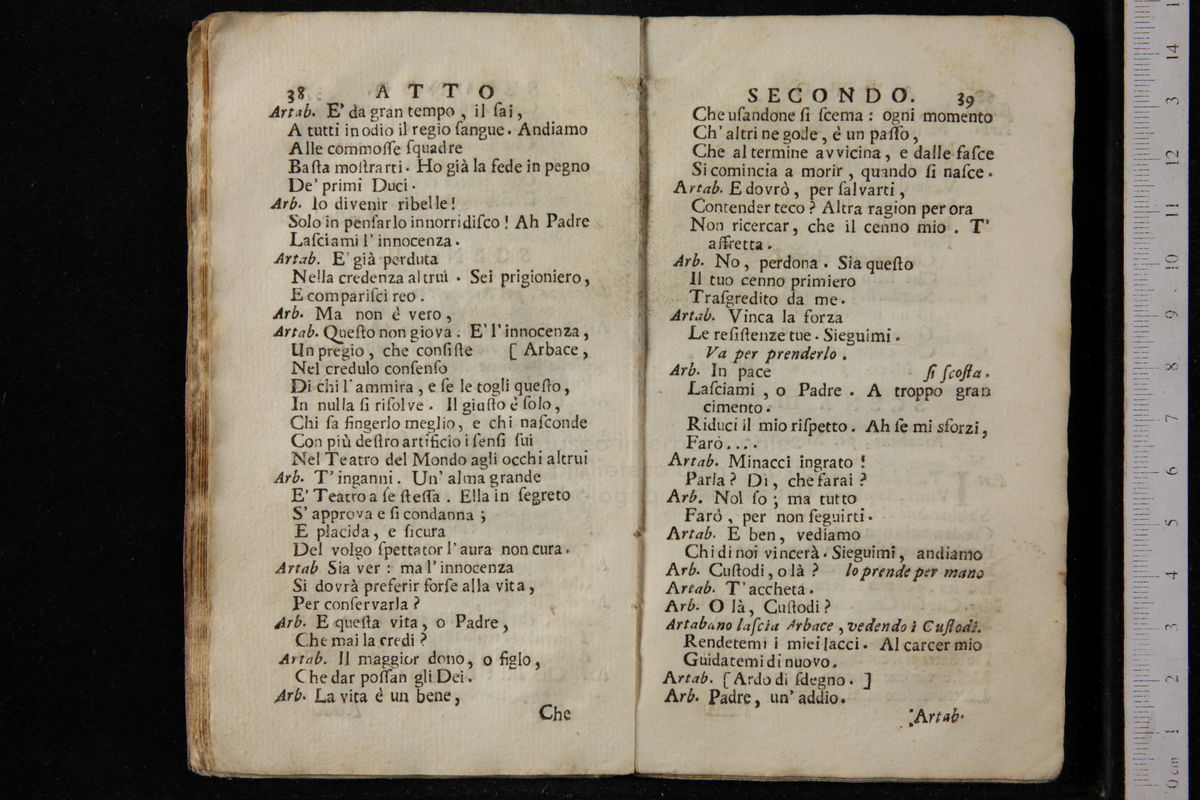 38 ATTO
Artab. E' da gran tempo , il ſai,
A tutti in odio il regio ſangue. Andiamo
Alle commoſſe ſquadre
Baſta moſtrarti. Ho già la fede in pegno
De' primi Duci.
Arb. Io divenir ribelle!
Solo in penſarlo innorridiſco! Ah Padre
Laſciami l' innocenza.
Artab. E' già perduta
Nella credenza altrui . Sei prigioniero,
E compariſci reo.
Arb. Ma non è vero,
Artab. Queſto non giova. E' l' innocenza,
Un pregio, che conſiſte [ Arbace,
Nel credulo conſenſo
Di chi l' ammira, e ſe le togli queſto,
In nulla ſi riſolve. Il giuſto è ſolo,
Chi ſa fingerlo meglio, e chi naſconde
Con più deſtro artificio i ſenſi ſui
Nel Teatro del Mondo agli occhi altrui
Arb. T' inganni. Un' alma grande
E' Teatro a ſe ſteſſa . Ella in ſegreto
S' approva e ſi condanna ;
E placida, e ſicura
Del volgo ſpettator l' aura non cura.
Artab Sia ver : ma l' innocenza
Si dovrà preferir forſe alla vita,
Per conſervarla ?
Arb. E queſta vita, o Padre,
Che mai la credi ?
Artab. Il maggior dono, o figlo,
Che dar poſſan gli Dei.
Arb. La vita è un bene,
Che
SECONDO. 39
Che uſandone ſi ſcema : ogni momento
Ch' altri ne gode, è un paſſo,
Che al termine avvicina, e dalle faſce
Si comincia a morir, quando ſi naſce.
Artab. E dovrò, per ſalvarti,
Contender teco ? Altra ragion per ora
Non ricercar, che il cenno mio . T'
affretta.
Arb. No, perdona. Sia queſto
Il tuo cenno primiero
Traſgredito da me.
Artab. Vinca la forza
Le reſiſtenze tue. Sieguimi.
Va per prenderlo .
Arb. In pace ſi ſcoſta.
Laſciami , o Padre . A troppo gran
cimento.
Riduci il mio riſpetto. Ah ſe mi sforzi,
Farò....
Artab. Minacci ingrato !
Parla ? Dì, che farai ?
Arb. Nol ſo ; ma tutto
Farò, per non ſeguirti.
Artab. E ben, vediamo
Chi di noi vincerà. Sieguimi, andiamo
Arb. Cuſtodi, olà ? lo prende per mano
Artab. T' accheta.
Arb. O là, Cuſtodi ?
Artabano laſcia Arbace , vedendo i Cuſtodi.
Rendetemi i miei lacci. Al carcer mio
Guidatemi di nuovo.
Artab. [ Ardo di ſdegno. ]
Arb. Padre, un' addio.
Artab.
14
13
12
11
10
9
8
7
6
5
4
3
2
1
0 cm